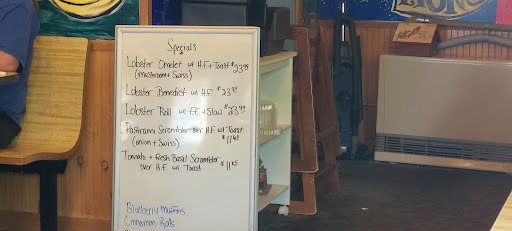 Specials
Lobster Omelet w/ H.F + Toast $23.99
(mushroom + Swiss)
Lobster Benedict w/ H.F $23.99
Lobster Roll w/ F.F + Slaw $23.99
Pastrami Scrambler over H.F w/ Toast
(onion + Swiss) $11.65
Tomato + Fresh Basil Scrambler
over H.F w/ Toast $11.65
Blueberry Muffins
Cinnamon Rolls
LIONS